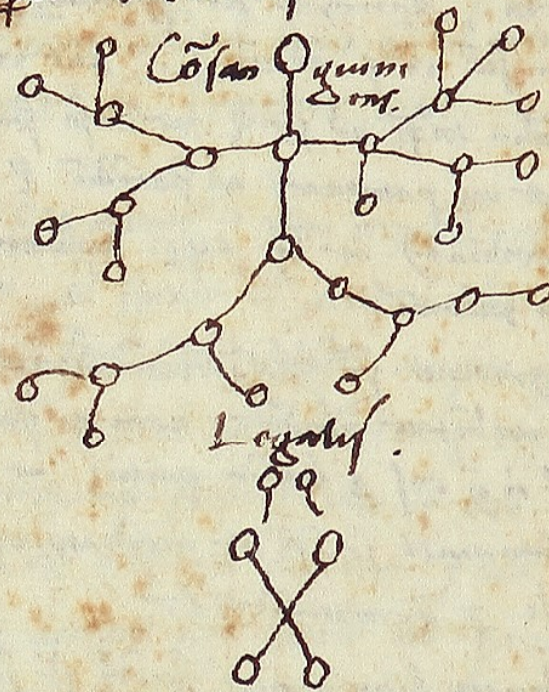 Cõsan guini
ens.
Legalis.